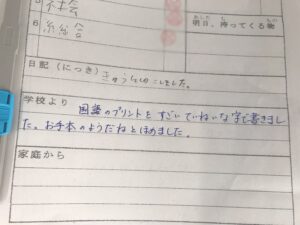 5 社会
6 総合
明日、持ってくる物
日記(にっき) きゅうしょくにしました。
学校より 国語のプリントをすごいていねいな字で書きまし
た。お手本のようだねとほめました。
家庭から